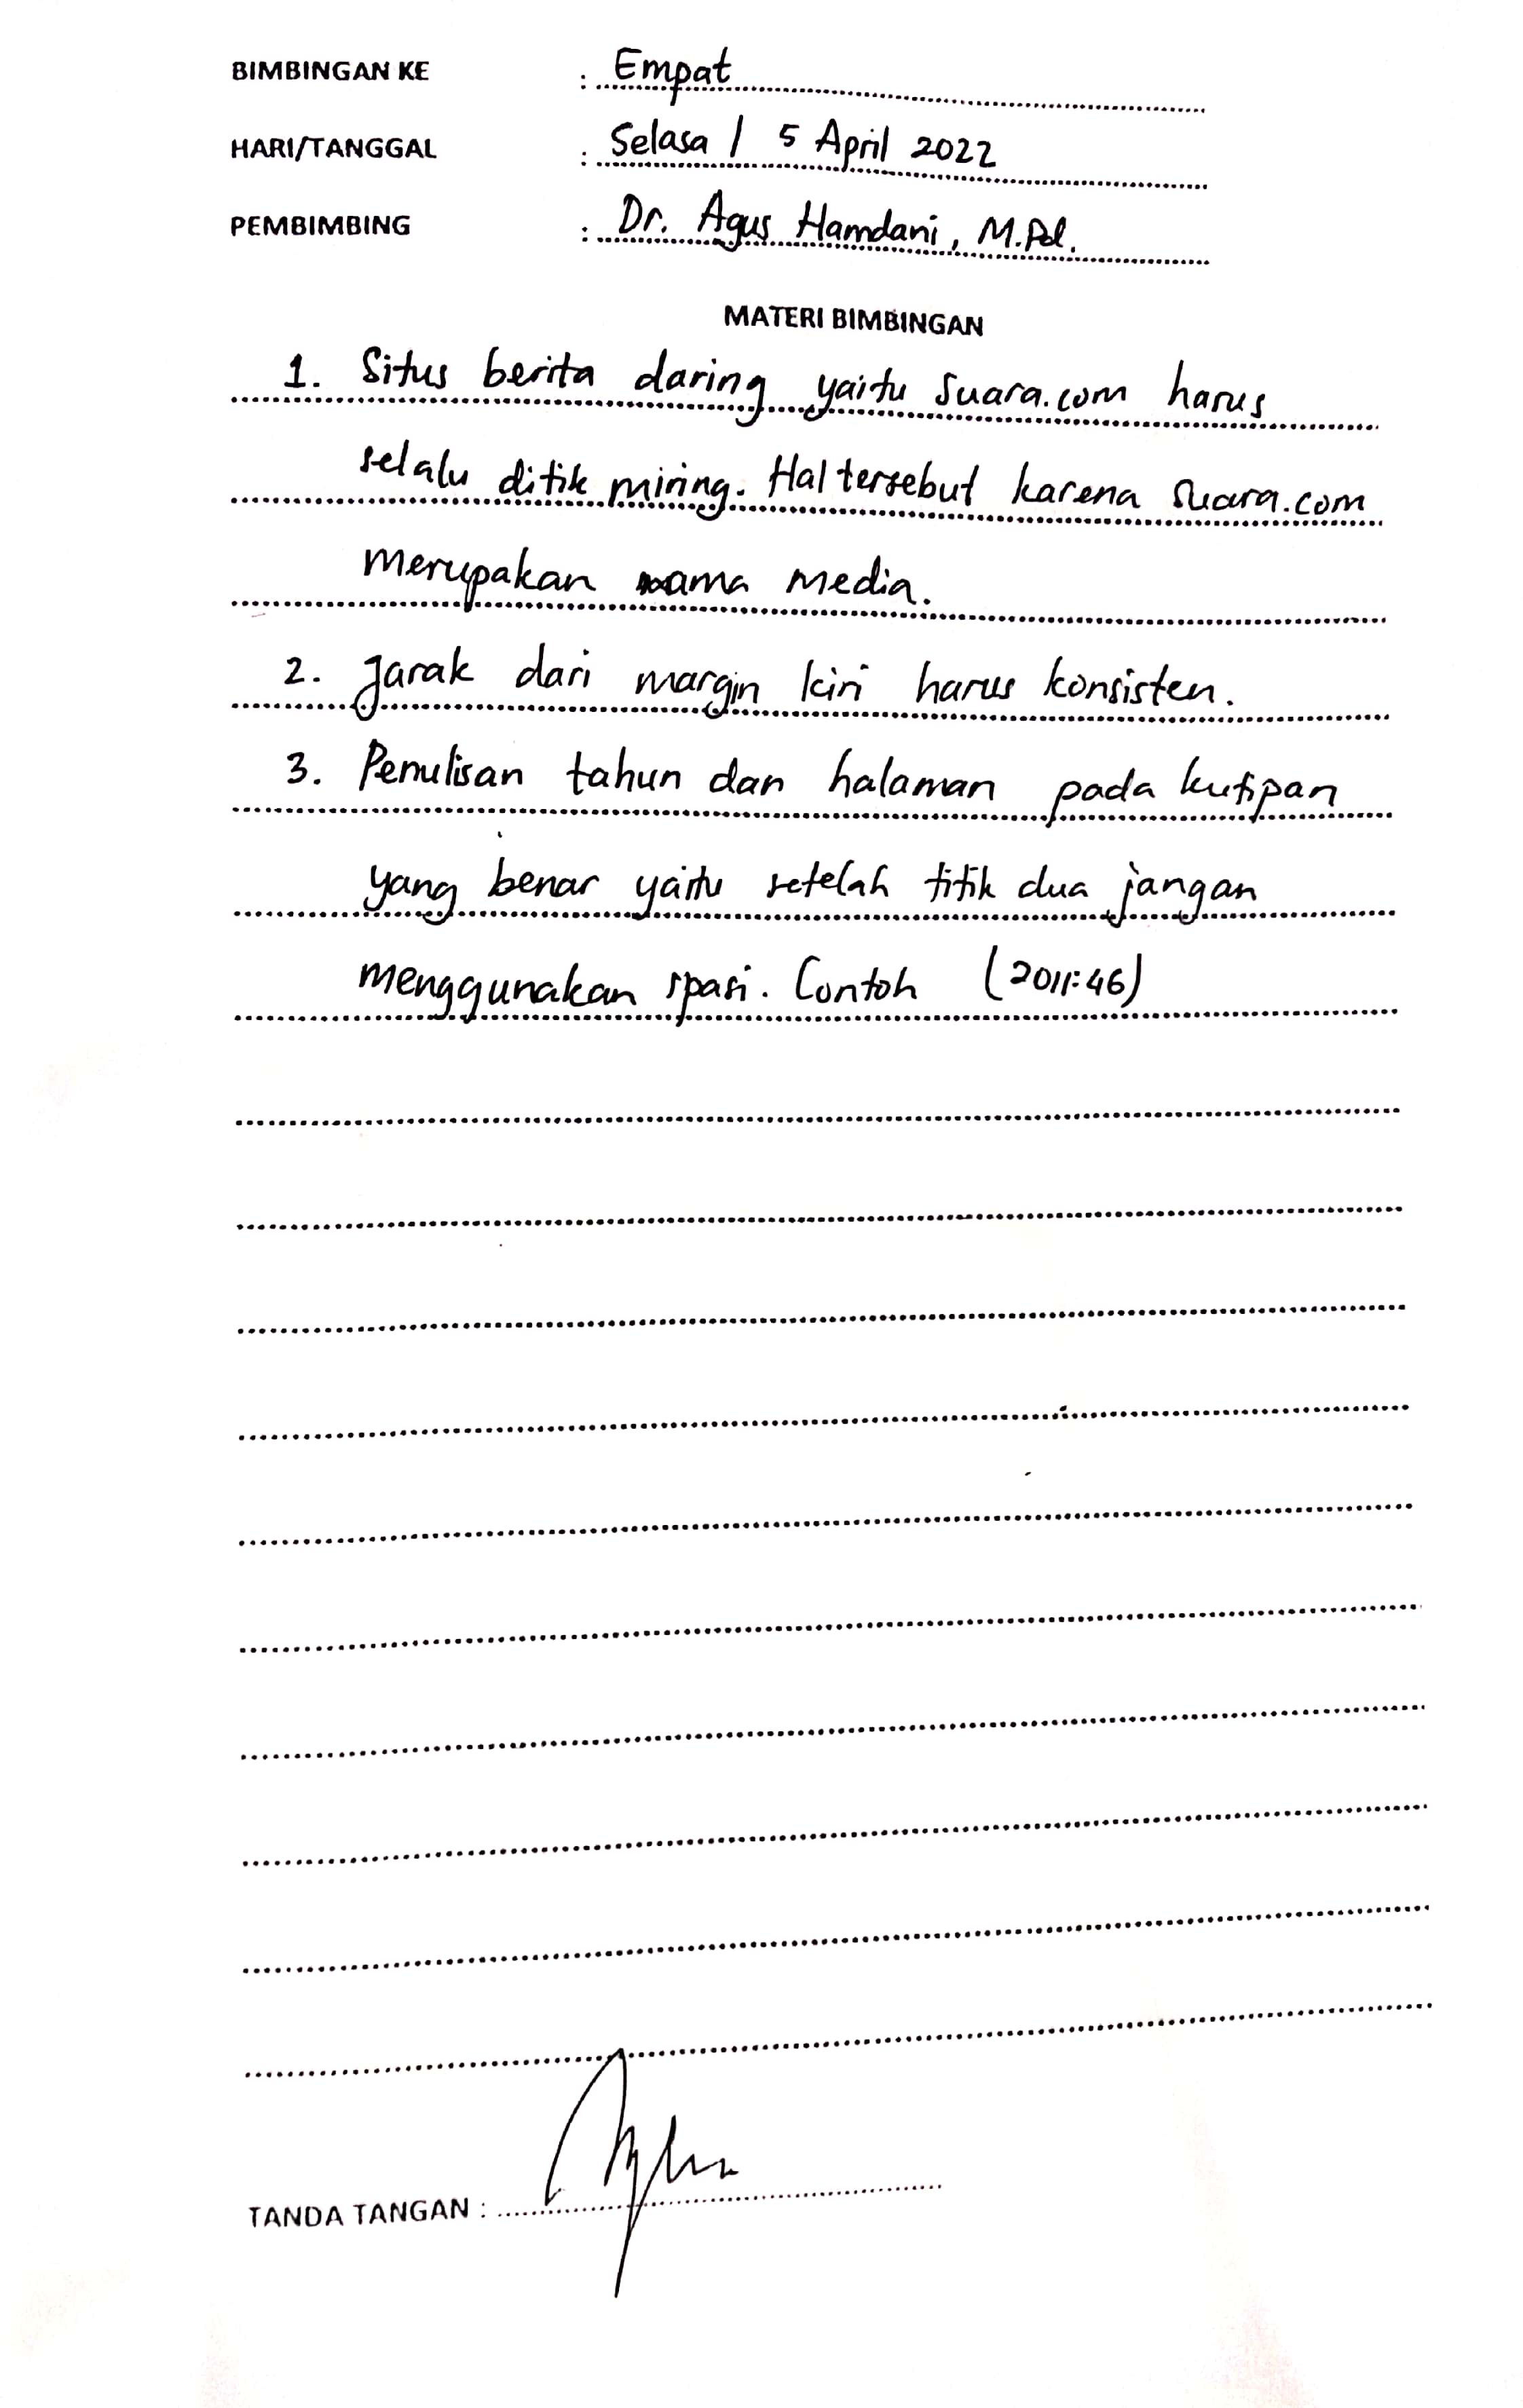 BIMBINGAN KE : Empat
HARI/TANGGAL : Selasa / 5 April 2022
PEMBIMBING : Dr. Agus Hamdani, M.Pd.
MATERI BIMBINGAN
1. Situs berita daring yaitu Suara.com harus
selalu ditik miring. Hal tersebut karena Suara.com
merupakan nama media.
2. Jarak dari margin kiri harus konsisten.
3. Penulisan tahun dan halaman pada kutipan
yang benar yaitu setelah titik dua jangan
menggunakan spasi. Contoh (2011:46)
TANDA TANGAN :